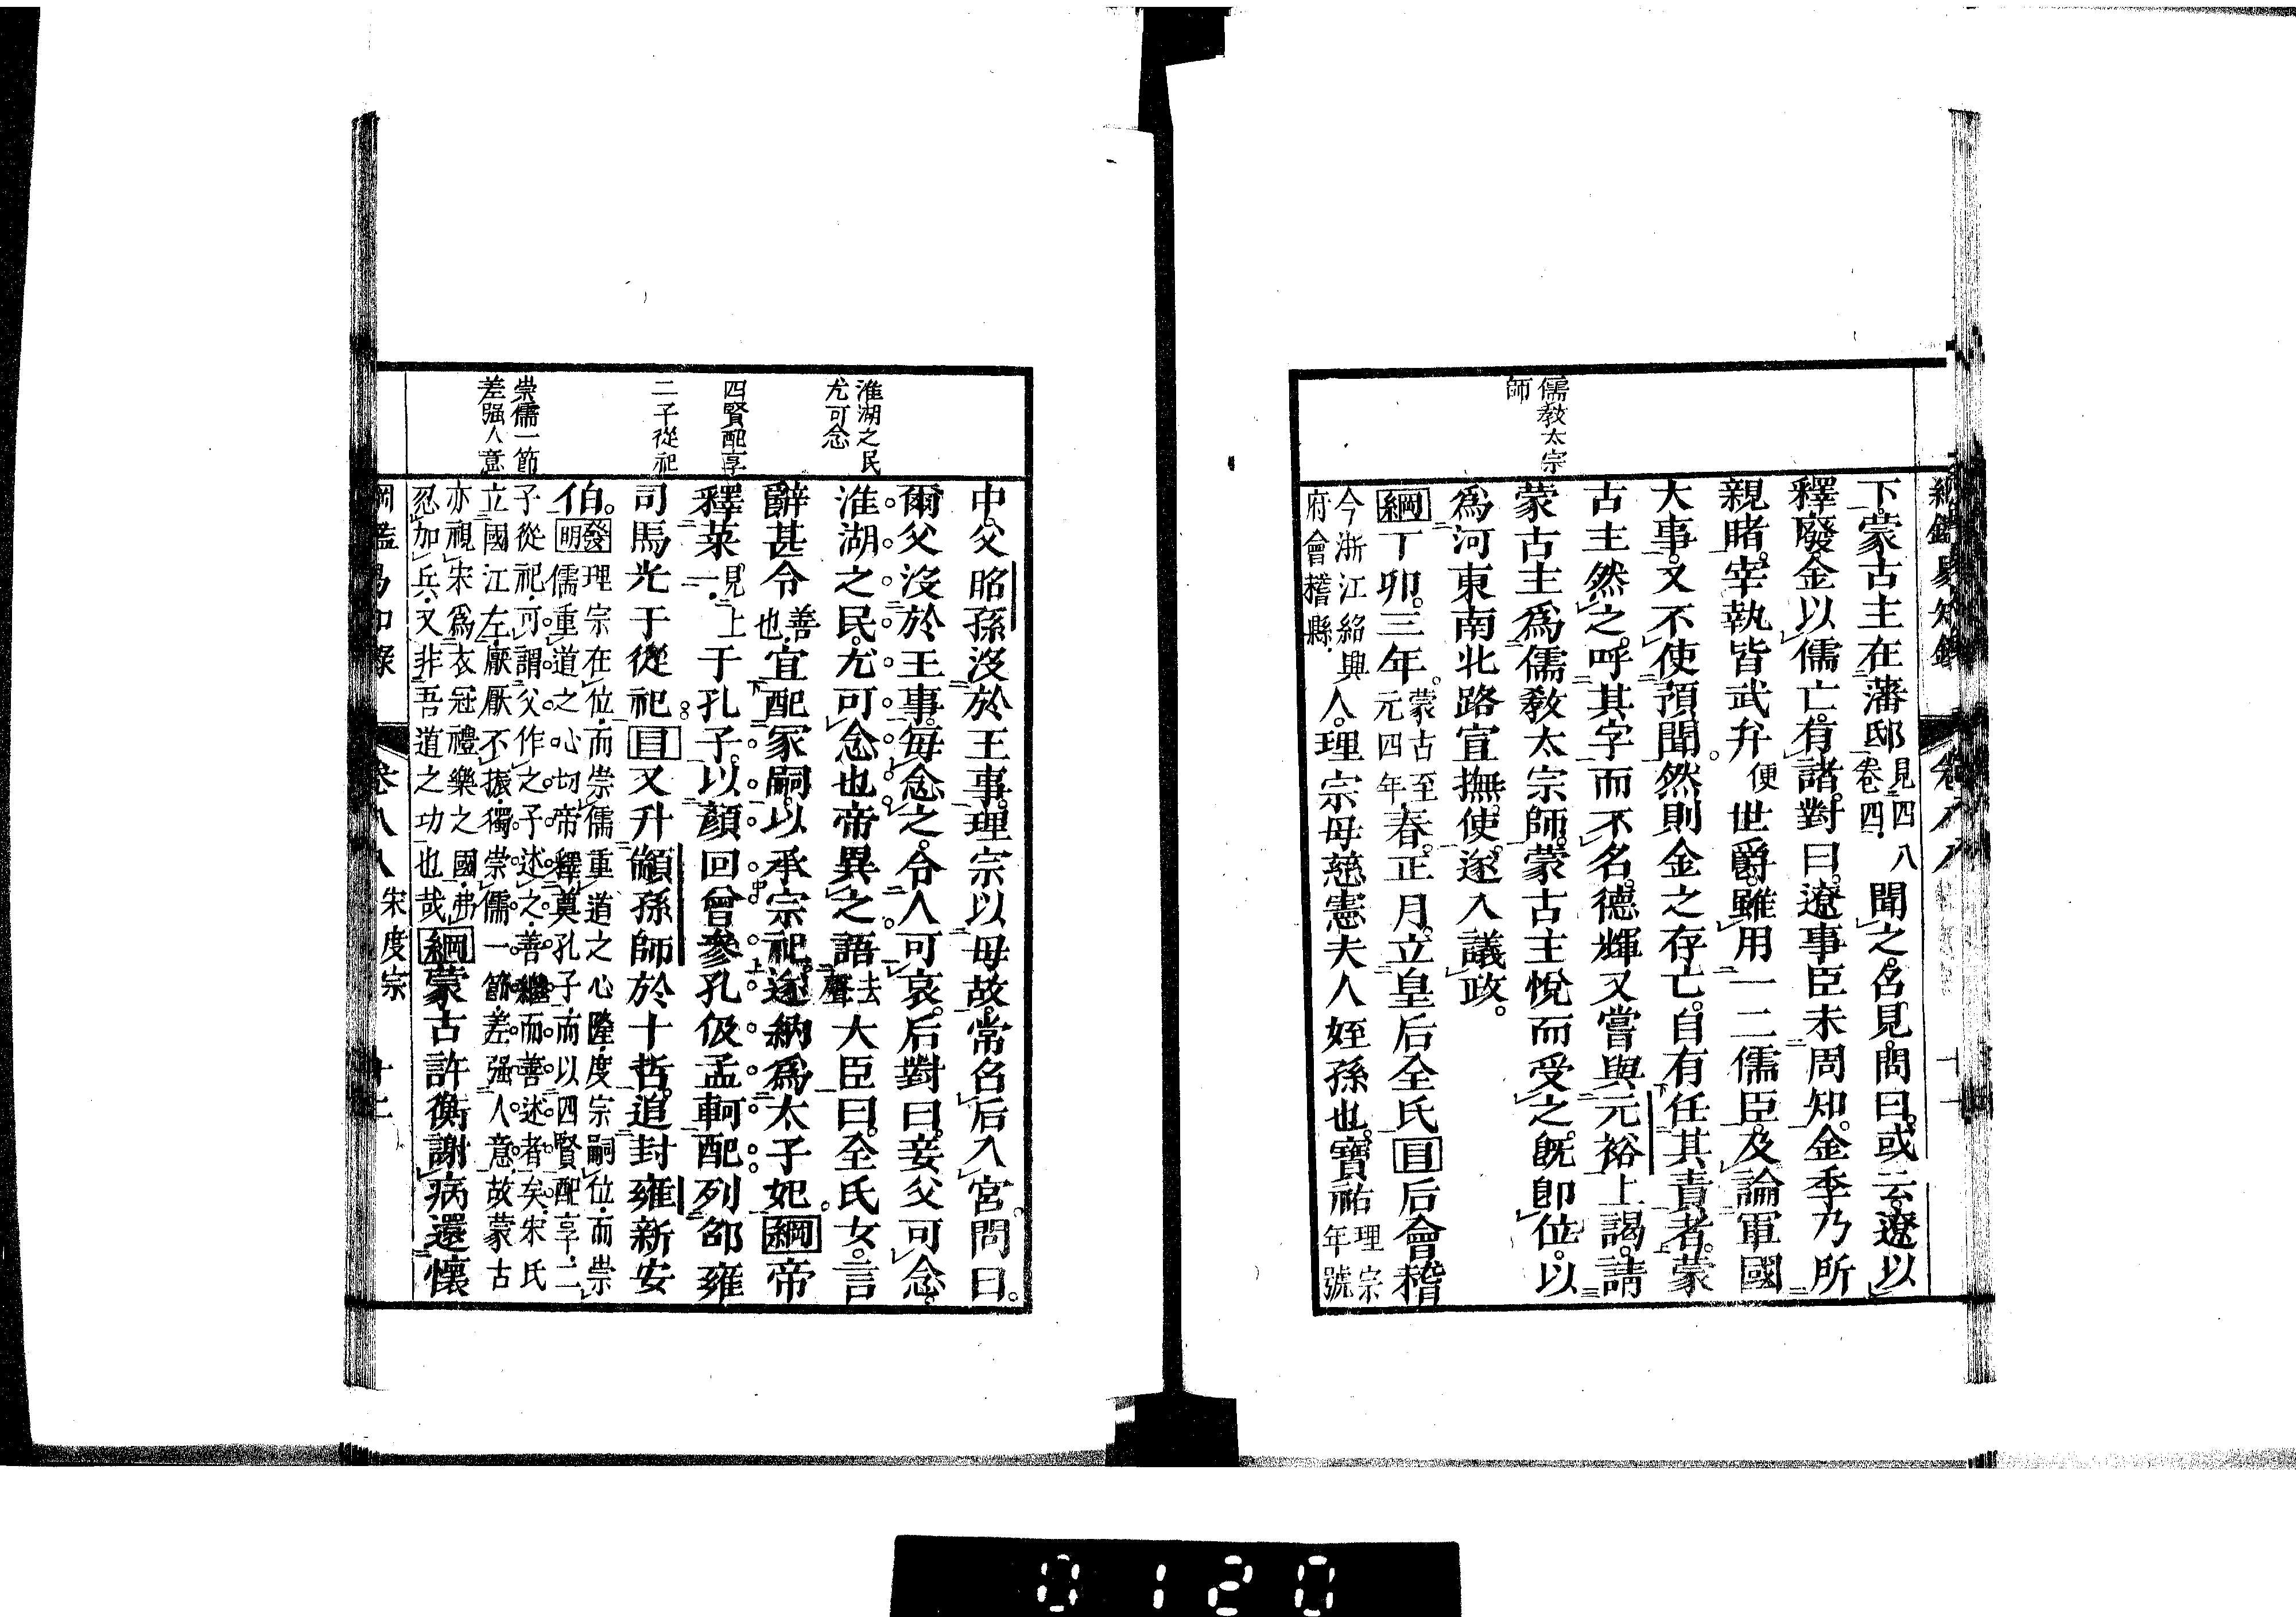 綱鑑易知錄 卷八八 十一
儒教太宗
師
下。蒙古主在藩邸見四八卷四.聞之。名見。問曰。或云。遼以
釋廢。金以儒亡。有諸。對曰。遼事臣未周知。金季乃所
親睹。宰執皆武弁便世爵。雖用一二儒臣。及論軍國
大事。又不使預聞。然則金之存亡。自有任其責者。蒙
古主然之。呼其字而不名。德輝又嘗與元裕上謁。請
蒙古主爲儒敎太宗師。蒙古主悅而受之。旣卽位。以
爲河東南北路宣撫使。遂入議政。
綱丁卯。三年。蒙古至元四年春。正月。立皇后全氏目后會稽
今浙江紹興府會稽縣.人。理宗母慈憲夫人姪孫也。寶祐理宗年號
淮湖之民
尤可念
四賢配享
二子從祀
崇儒一節
差强人意
中。父昭孫沒於王事。理宗以母故。常名后入宮。問曰。
爾父沒於王事。每念之。令人可哀。后對曰。妾父可念。
淮湖之民。尤可念也。帝異之。語去聲大臣曰。全氏女。言
辭甚令善也.宜配冢嗣。以承宗祀。遂納爲太子妃。綱帝
釋菜見上一.于孔子。以顏回曾參孔伋孟軻配列邵雍
司馬光于從祀。目又升顓孫師於十哲。追封雍新安
伯。發明理宗在位.而崇儒重道之心隆.度宗嗣位.而崇
儒重道之心切.帝釋奠孔子.而以四賢配享.二
子從祀.可謂父作之子述之善繼而善述者矣.宋氏
立國江左.厭厭不振.獨崇儒一節.差强人意.故蒙古
亦視宋爲衣冠禮樂之國.弗
忍加兵.又非吾道之功也哉綱蒙古許衡謝病還懷
綱鑑易知錄 卷八八 宋度宗 十二
0120